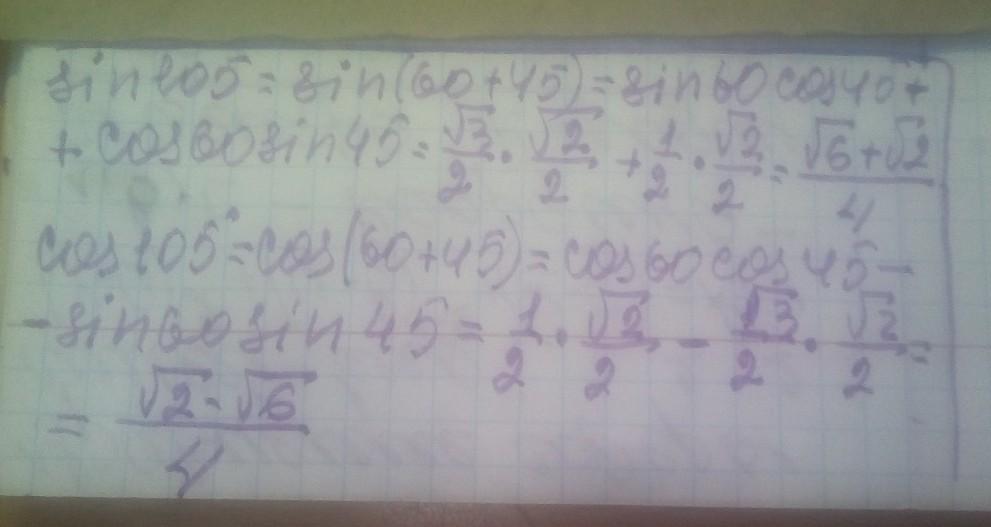 sin105=sin(60+45)=sin60cos45+
+cos60sin45=√3/2·√2/2+1/2·√2/2=(√6+√2)/4
cos105°=cos(60+45)=cos60cos45-
-sin60sin45=1/2·√2/2-√3/2·√2/2=
=(√2-√6)/4